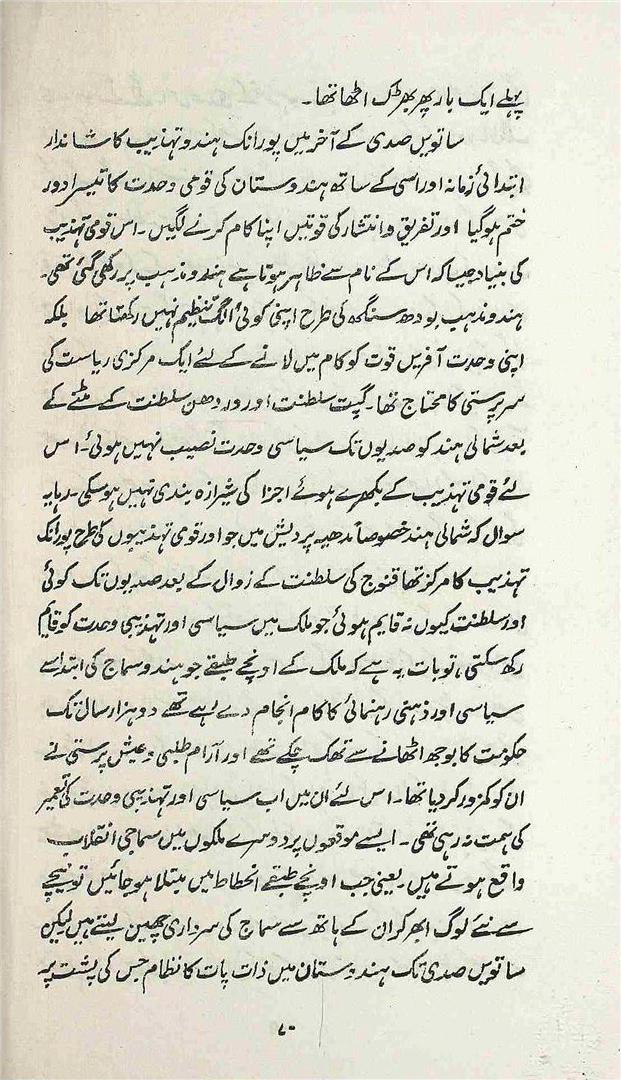 پہلے ایک بار پھر بھڑک اٹھا تھا۔
ساتویں صدی کے آخر میں پورانک ہندو تہذیب کا شاندار
ابتدائی زمانہ اور اسی کے ساتھ ہندوستان کی قومی وحدت کا تیسرا دور
ختم ہوگیا اور تفریق و انتشار کی قوتیں اپنا کام کرنے لگیں۔ اس قومی تہذیب
کی بنیاد جیسا کہ اس کے نام سے ظاہر ہوتا ہے ہندو مذہب پر رکھی گئی تھی۔
ہندو مذہب بودھ سنگھ کی طرح اپنی کوئی الگ تنظیم نہیں رکھتا تھا بلکہ
اپنی وحدت آفریں قوت کو کام میں لانے کے لئے ایک مرکزی ریاست کی
سرپرستی کا محتاج تھا۔ گپت سلطنت اور وردھن سلطنت کے مٹنے کے
بعد شمالی ہند کو صدیوں تک سیاسی وحدت نصیب نہیں ہوئی۔ اس
لئے قومی تہذیب کے بکھرے ہوئے اجزا کی شیرازہ بندی نہیں ہوسکی۔ رہا یہ
سوال کہ شمالی ہند خصوصاً مدھیہ پردیش میں جو اور قومی تہذیبوں کی طرح پورانک
تہذیب کا مرکز تھا قنوج کی سلطنت کے زوال کے بعد صدیوں تک کوئی
اور سلطنت کیوں نہ قایم ہوئی جو ملک میں سیاسی اور تہذیبی وحدت کو قایم
رکھ سکتی، تو بات یہ ہے کہ ملک کے اونچے طبقے جو ہندو سماج کی ابتدا سے
سیاسی اور ذہنی رہنمائی کا کام انجام دے رہے تھے دو ہزار سال تک
حکومت کا بوجھ اٹھانے سے تھک چکے تھے اور آرام طلبی و عیش پرستی نے
ان کو کمزور کردیا تھا۔ اس لئے ان میں اب سیاسی اور تہذیبی وحدت کی تعمیر
کی ہمت نہ رہی تھی۔ ایسے موقعوں پر دوسرے ملکوں میں سماجی انقلاب
واقع ہوتے ہیں۔ یعنی جب اونچے طبقے انحطاط میں مبتلا ہوجائیں تو نیچے
سے نئے لوگ ابھر کر ان کے ہاتھ سے سماج کی سرداری چھین لیتے ہیں لیکن
ساتویں صدی تک ہندوستان میں ذات پات کا نظام جس کی پشت پر
۷۰